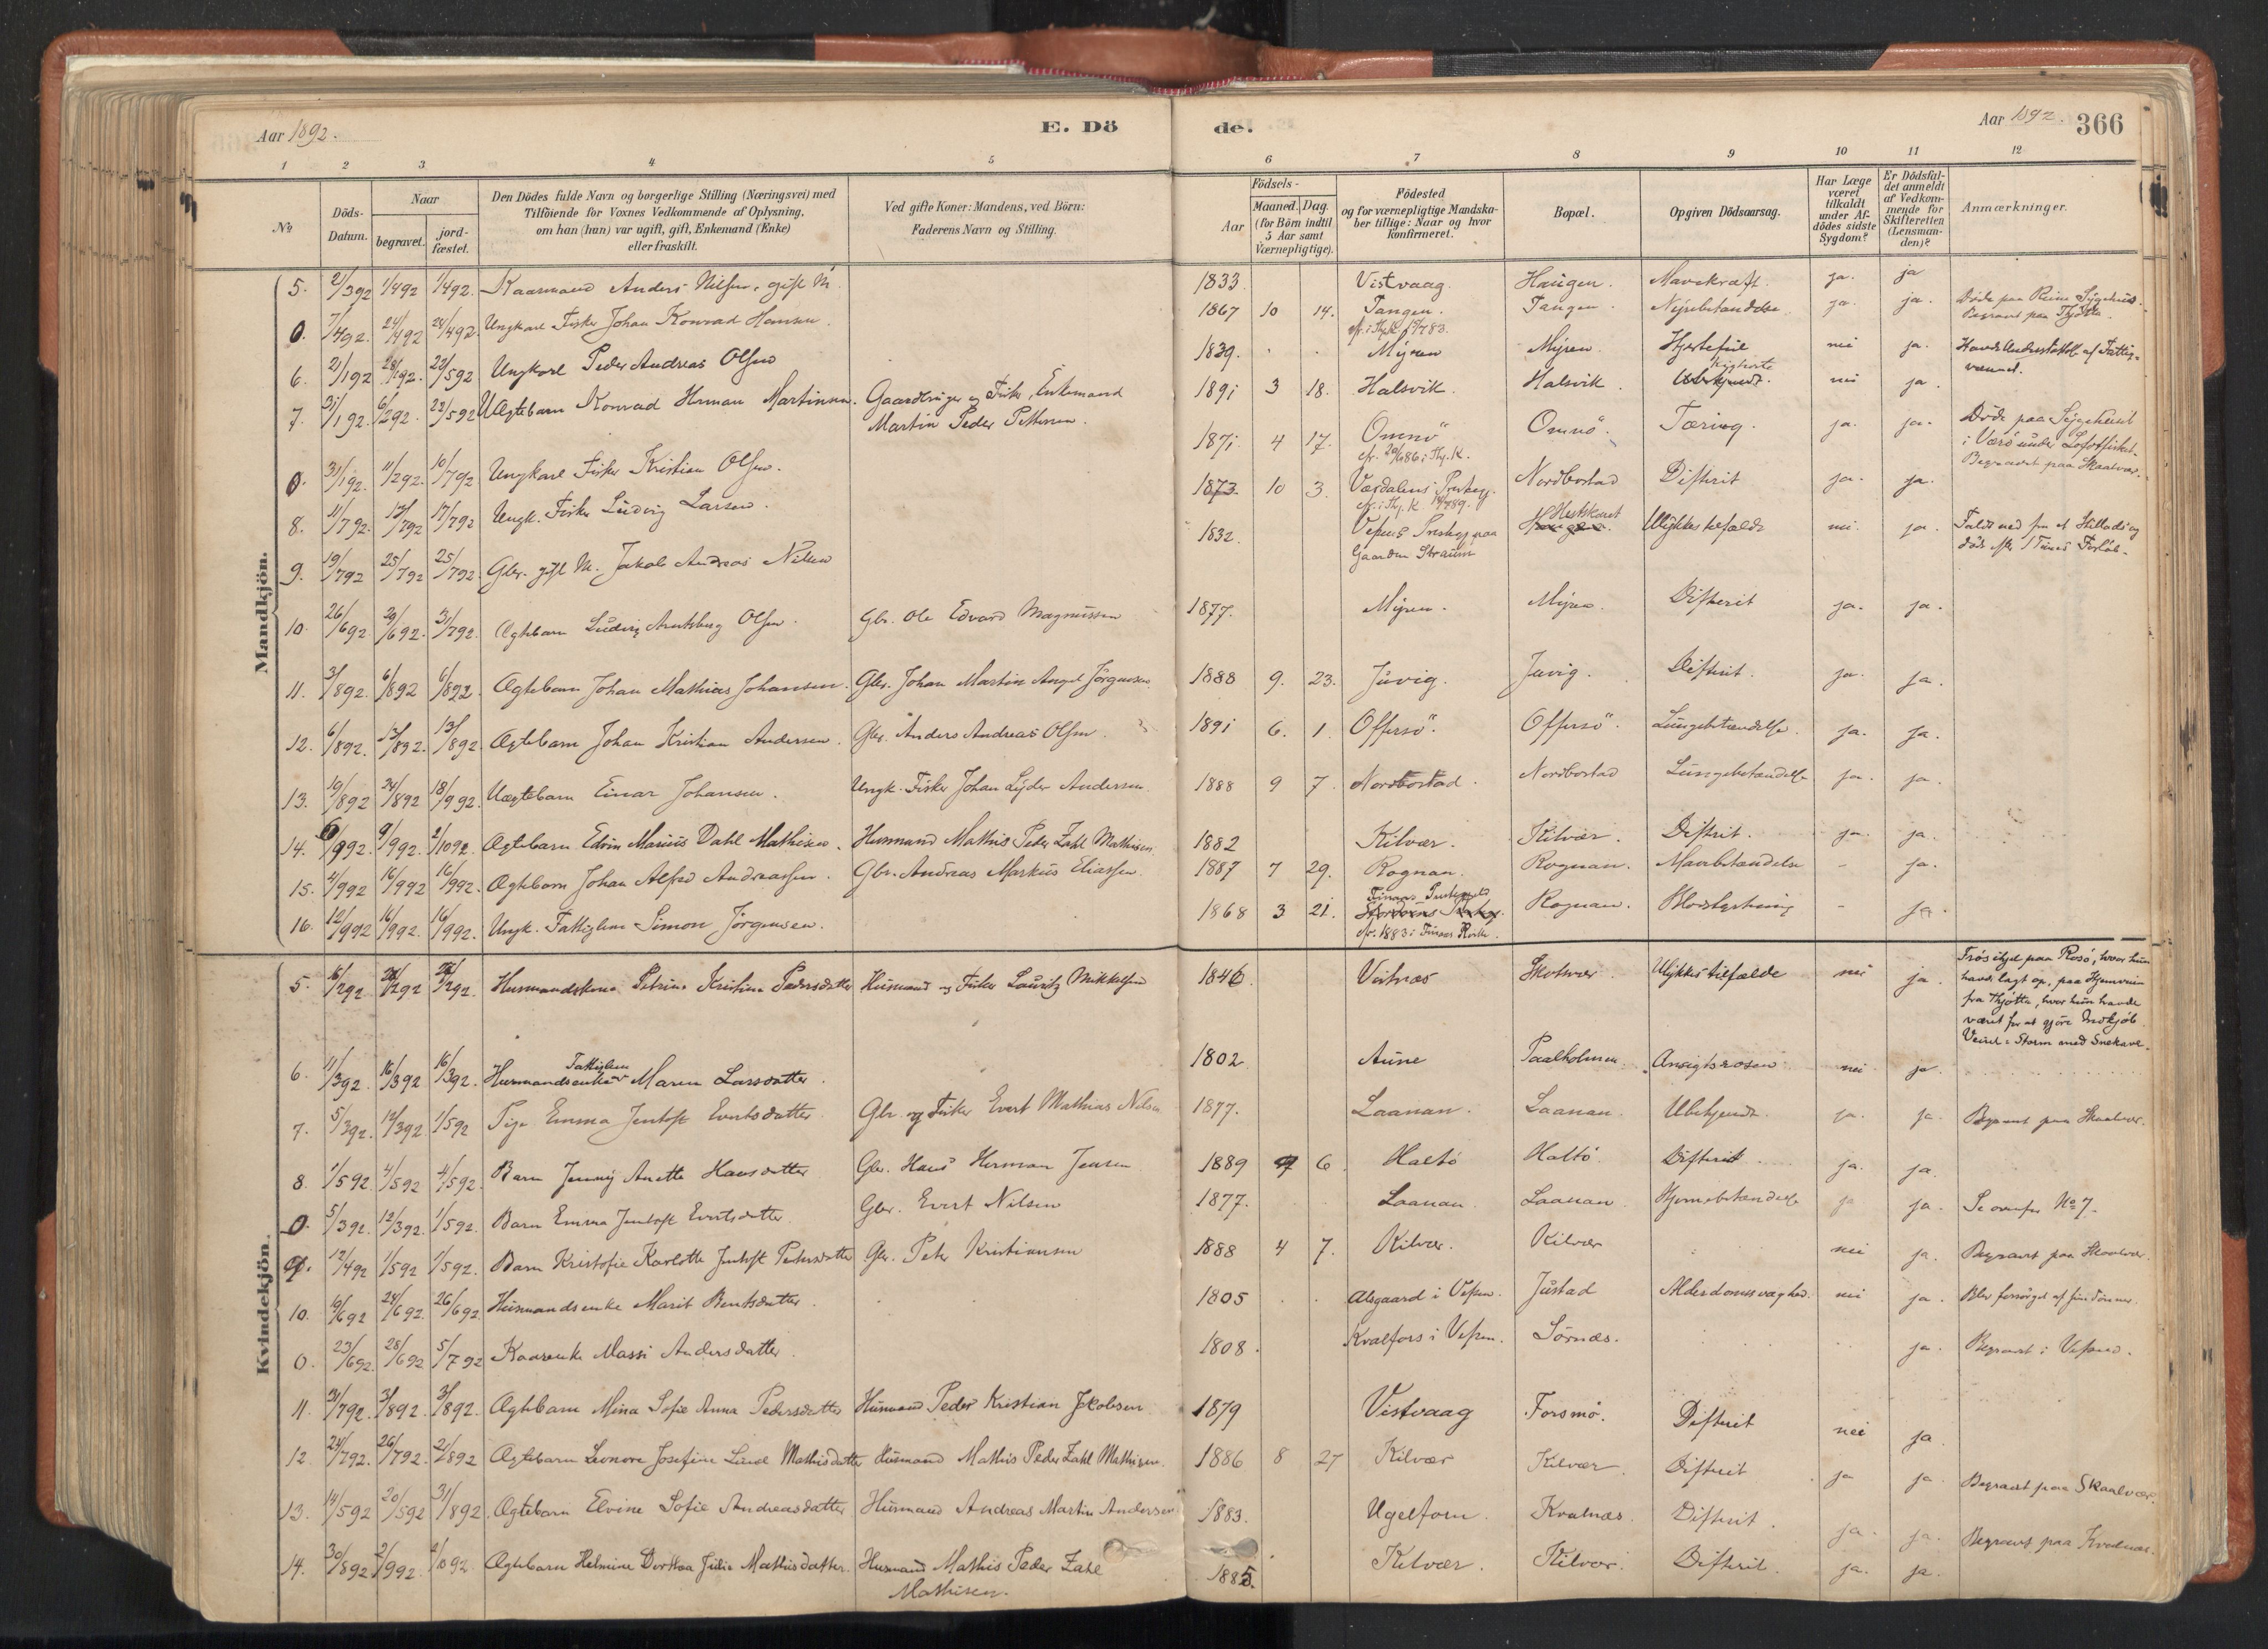 Aar 1892. E. Dö de. Aar 1892. 366
1 2 3 4 5 6 7 8 9 10 11 12
№ Döds-Datum. Naar begravet. jord-fæstet. Den Dödes fulde Navn og borgerlige Stilling (Næringsvei) med Tilföiende for Voxnes Vedkommende af Oplysning, om han (hun) var ugift, gift, Enkemand (Enke) eller fraskilt. Ved gifte Koner: Mandens, ved Börn: Faderens Navn og Stilling. Födsels- Aar Maaned. Dag. (for Börn indtil 5 Aar samt Værnepligtige). Födested og for værnepligtige Mandskaber tillige: Naar og hvor konfirmeret. Bopæl. Opgiven Dödsaarsag. Har Læge været tilkaldt under Afdödes sidste Sygdom? Er Dödsfaldet anmeldt af Vedkommende for Skifteretten (Lensmanden)? Anmærkninger.
Mandkjön.
5. 2/392 1/492 1/492. Kaarmand Anders Nilsen, gift M. 1833. Vistvaag. Haugen. Mavekræft. ja. ja
0. 7/492. 24/492 24/492. Ungkarl Fisker Johan Konrad Hansen. 1867 10 14. Tangen. Tangen. Nyrebetændelse ja. ja. Döde paa Reine Sygehus. Begravet paa Tjötta.
6. 21/192 28/192. 22/592 Ungkarl Peder Andreas Olsen 1839. Myren Myren. Hjertefeil nei ja. Havde Understöttelse af Fattigvæsenet.
7. 31/192. 6/292. 22/592 Uægtebarn Konrad Herman Martinsen. Gaardbruger og Fisker, Enkemand Martin Peder Pettersen. 1891 3 18. Halsvik. Halsvik. Kighoste Ubekjendt. nei ja.
0. 31/192. 11/292. 10/792 Ungkarl Fisker Kristian Olsen. 1871. 4 17. Omnö Omnö. Tæring. ja. ja. Döde paa Sygehuset i Værö under Lofotfisket. Begravet paa Skaalvær.
8. 11/792. 17/792 17/792 Ungk. Fisker Ludvig Larsen. 1873. 10 3. Værdalens Prestegj. Nordbostad Difterit ja. ja.
9. 19/792 25/792 25/792. Gbr. gift M. Jakob Andreas Nilsen 1832. Vefsens Prestegj. paa Gaarden Straum Hestskaret Ulykkestilfælde nei. ja. Faldt ned fra et Stillads og döde efter 1 Times Forlöb.
10. 26/692 29/692. 31/792. Ægtebarn Ludvig Arntsberg Olsen. Gbr. Ole Edvard Magnussen 1877. Myren. Myren. Difterit ja. ja.
11. 3/892. 6/892 6/892. Ægtebarn Johan Mathias Johansen. Gbr. Johan Martin Angel Jörgensen 1888 9. 23. Juvig. Juvig. Difterit. ja. ja.
12. 6/892. 13/892. 13/892. Ægtebarn Johan Kristian Andersen. Gbr. Anders Andreas Olsen. 1891 6. 1. Offersö. Offersö. Lungebetændelse. ja. ja.
13. 19/892 24/892 18/992. Uægtebarn Einar Johansen. Ungk. Fisker Johan Lyder Andersen. 1888 9 7. Nordbostad. Nordbostad Lungebetændelse ja. ja.
14. 6/992. 9/992. 2/1092. Ægtebarn Edvin Marius Dahl Mathisen. Husmand Mathis Peder Zahl Mathisen. 1882 Kilvær. Kilvær. Difterit. ja. ja.
15. 4/992 16/992 16/992. Ægtebarn Johan Alfred Andreassen. Gbr. Andreas Markus Eliassen. 1887 7 29. Rognan. Rognan. Mavebetændelse - ja.
16. 12/992 16/992. 16/992. Ungk. Fattiglem Simon Jörgensen. 1868 3 21. Rognan. Blodstyrtning - ja.
Kvindekjön.
5. 16/292 Husmandskone Petrine Kristine Pedersdatter Husmand og Fisker Lauritz Mikkelsen 1846. Veitnæs Skotvær Ulykkestilfælde nei ja. Frös ihjel paa Rosö, hvor hun havde lagt op, paa Hjemveien fra Thjötta, hvor hun havde været for at gjöre Indkjöb. Veiret: Storm med Snekave.
6. 11/392. 16/392 16/392. Fattiglem Husmandsenke Maren Larsdatter. 1802 Aune Paalholmen. Ansigtsrosen nei ja.
7. 5/392. 12/392 1/592 Pige Emma Jentoft Evertsdatter. Gbr. og Fisker Evert Mathias Nilsen 1877. Laanan. Laanan. Ubekjendt. ja. ja. Begravet paa Skaalvær.
8. 1/592. 4/592 4/592. Barn Jenny Anette Hansdatter Gbr. Hans Herman Jensen 1889 9 6. Haltö Haltö. Difterit ja. ja.
0. 5/392. 12/392. 1/592. Barn Emma Jentoft Evertsdatter. Gbr. Evert Nilsen 1877. Laanan Laanan Hjernebetændelse ja ja. Se ovenfor No 7.
9. 12/492 1/592 1/592. Barn Kristofie Karlotte Jentoft Petersdatter Gbr. Peter Kristiansen 1888 4 7. Kilvær. Kilvær nei ja. Begravet paa Skaalvær.
10. 19/692 24/692. 26/692 Husmandsenke Marit Bentsdatter. 1805 Alsgaard i Vefsen. Justad Alderdomssvaghed. nei ja. Blev forsörget af sin Sön.
0. 23/692. 28/692 5/792 Kaarenke Massi Andersdatter. 1808. Kvalfors i Vefsen. Sörnæs. ja. Begravet i Vefsen.
11. 31/792. 3/892. 3/892. Ægtebarn Mina Sofie Anna Pedersdatter Husmand Peder Kristian Jakobsen. 1879 Vistvaag Forsmo. Difterit nei ja.
12. 24/792. 26/792. 21/892 Ægtebarn Leonore Josefine Lund Mathisdatter Husmand Mathis Peder Zahl Mathisen. 1886 8 27 Kilvær Kilvær. Difterit ja ja. Begravet paa Skaalvær.
13. 14/592 20/592 31/892. Ægtebarn Elvine Sofie Andreasdatter Husmand Andreas Martin Andersen 1883. Ugelfoen. Kvalnæs. Difterit. ja. ja. Begravet paa Kvalnæs.
14. 30/892 2/992. 2/1092. Ægtebarn Helmine Dorthea Julie Mathisdatter. Husmand Mathis Peder Zahl Mathisen. 1885. Kilvær. Kilvær. Difterit. ja. ja.